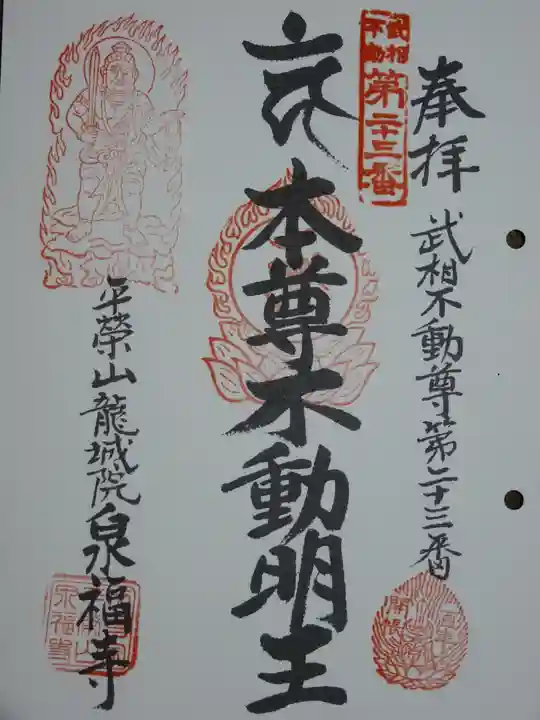 奉拝
武相不動尊第二十三番
武相
不動
第二十三番
本尊不動明王
平榮山龍城院泉福寺
開帳